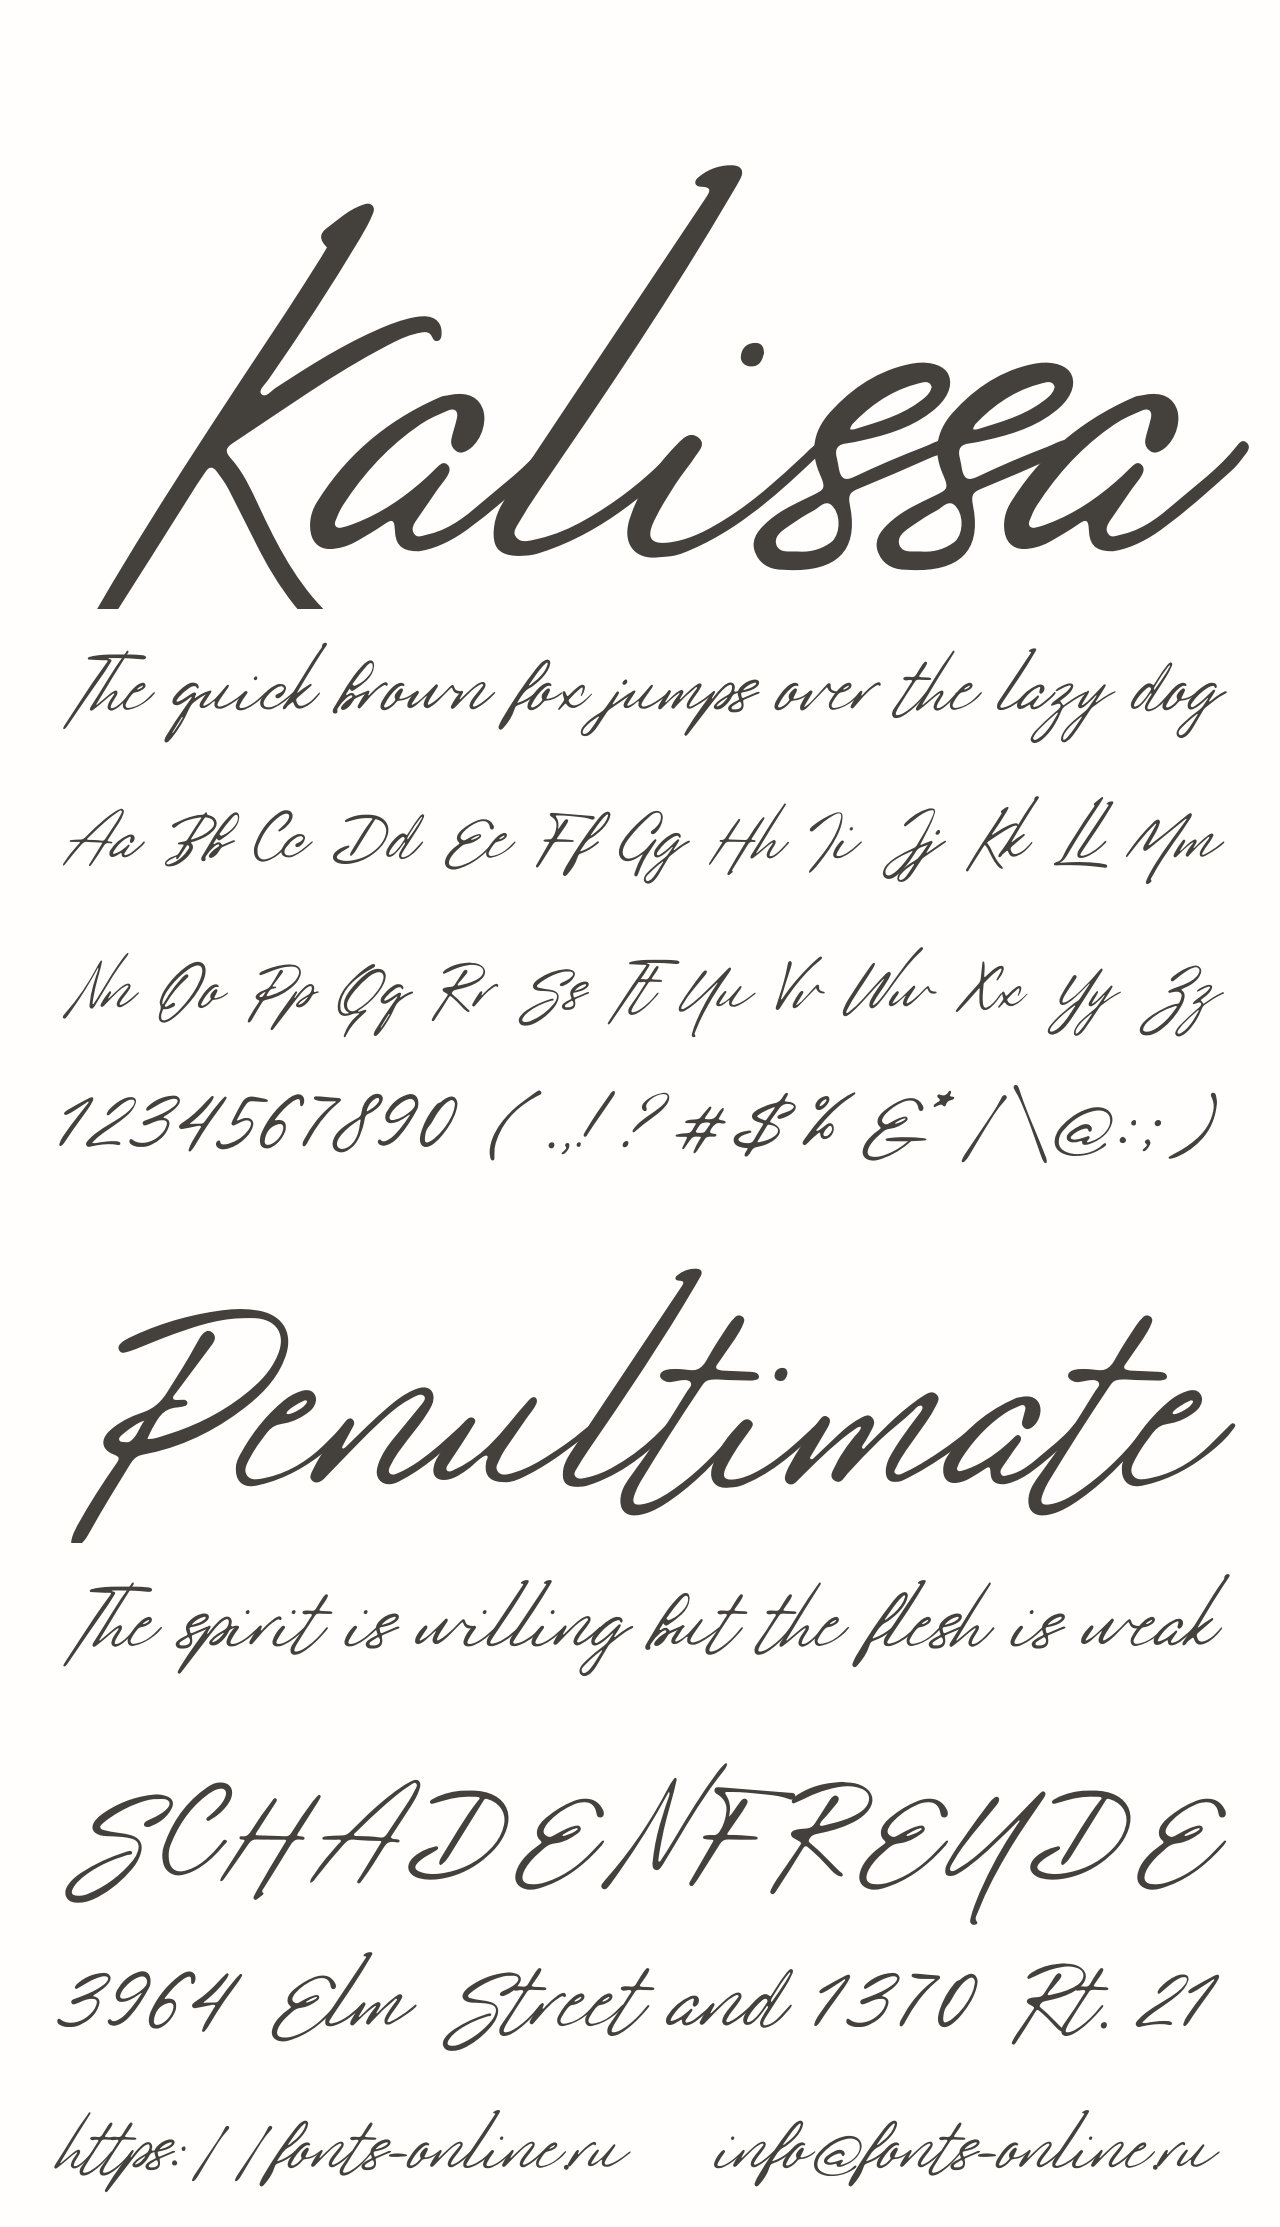 Kalissa
The quick brown fox jumps over the lazy dog
Aa Bb Cc Dd Ee Ff Gg Hh Ii Jj Kk Ll Mm
Nn Oo Pp Qq Rr Ss Tt Uu Vv Ww Xx Yy Zz
1234567890 ( .,! .? #$% &* /\@:; )
Penultimate
The spirit is willing but the flesh is weak
SCHADENFREUDE
3964 Elm Street and 1370 Rt. 21
https://fonts-online.ru info@fonts-online.ru